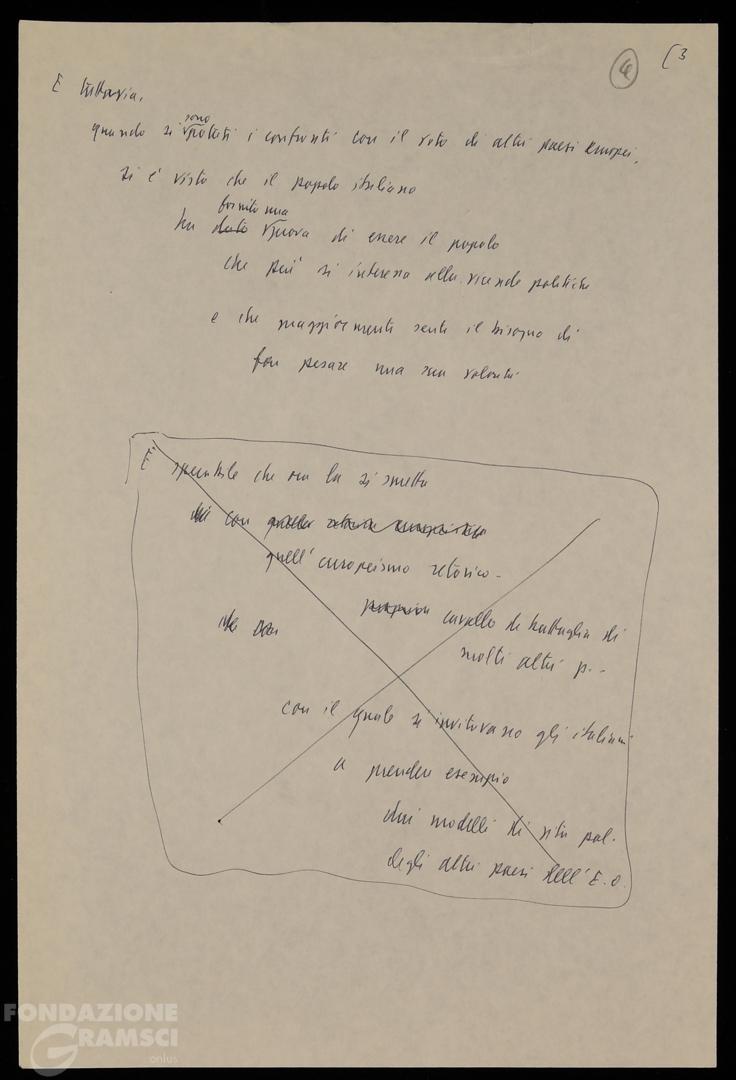 4
3
E tuttavia,
quando si sono potuti i confronti con il voto di altri paesi europei,
si è visto che il popolo italiano
ha dato fornito una prova di essere il popolo
che più si interessa alle vicende politiche
e che maggiormente sente il bisogno di
far pesare una sua volontà
E' sperabile che ora la si smetta
con quella retorica europeistica
quell'europeismo retorico -
cavallo di battaglia di
molti altri p..
con il quale si invitavano gli italiani
a prendere esempio
dai modelli di vita pol.
degli altri paesi dell'E.O.
FONDAZIONE
GRAMSCI
onlus